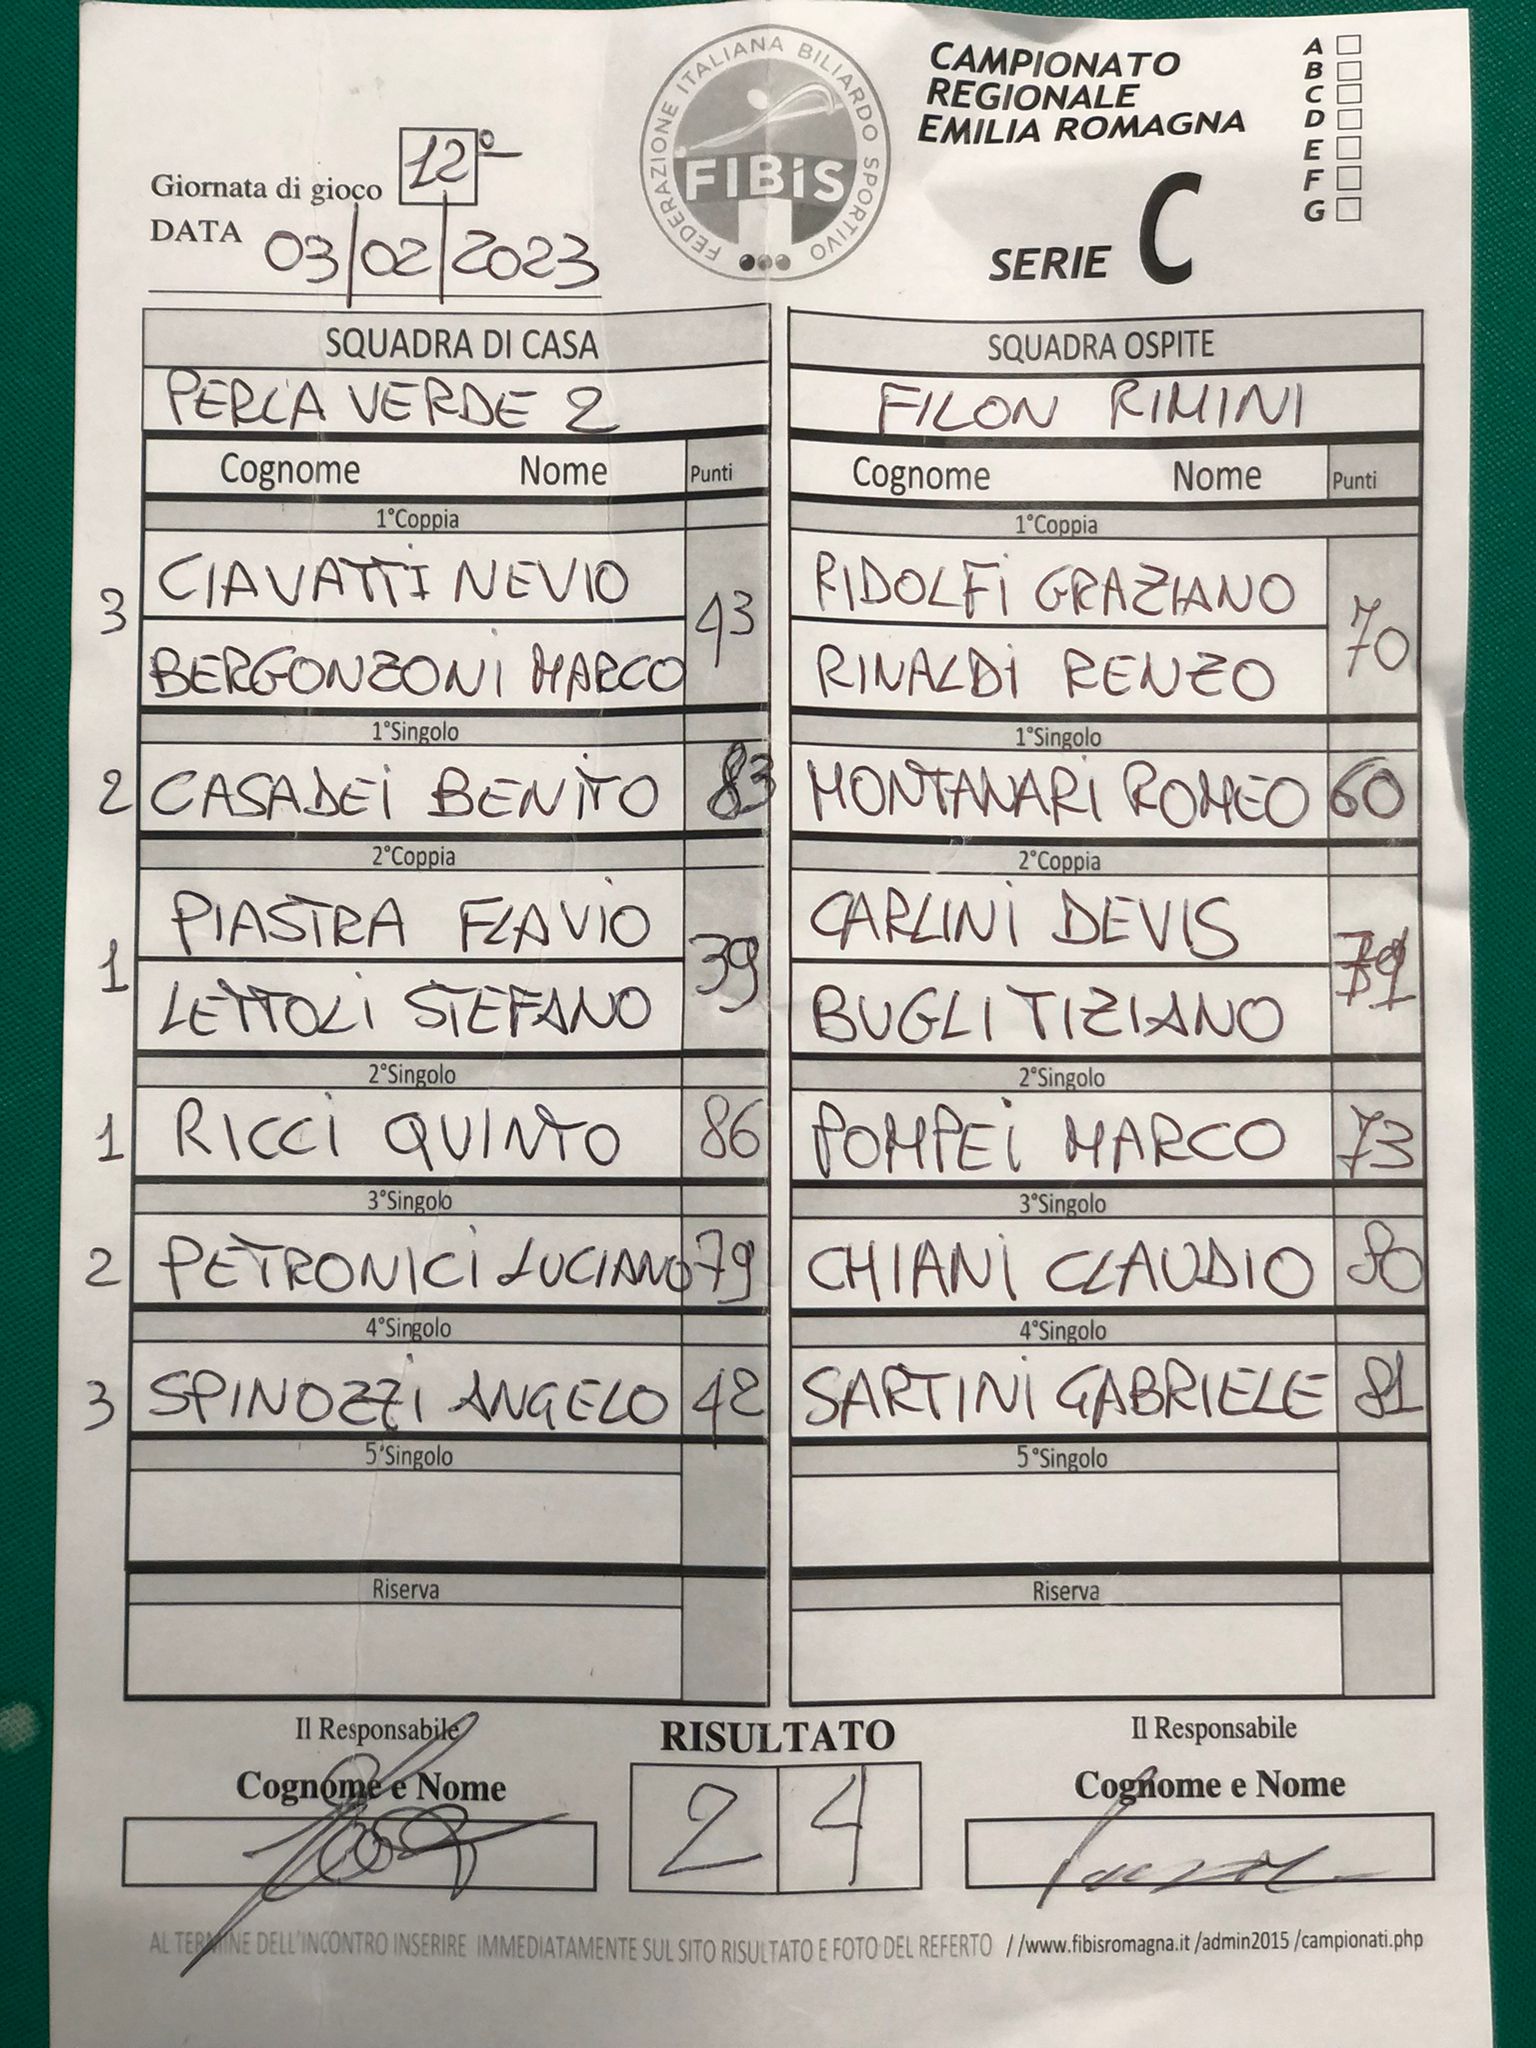 FEDERAZIONE ITALIANA BILIARDO SPORTIVO
FIBiS
CAMPIONATO
REGIONALE
EMILIA ROMAGNA
SERIE C
A
B
C
D
E
F
G
Giornata di gioco 12°
DATA 03/02/2023
SQUADRA DI CASA
PERLA VERDE 2
Cognome Nome Punti
1°Coppia
3 CIAVATTI NEVIO 43
BERGONZONI MARCO
1°Singolo
2 CASADEI BENITO 83
2°Coppia
1 PIASTRA FLAVIO 39
LETTOLI STEFANO
2°Singolo
1 RICCI QUINTO 86
3°Singolo
2 PETRONICI LUCIANO 79
4°Singolo
3 SPINOZZI ANGELO 42
5°Singolo
Riserva
SQUADRA OSPITE
FILON RIMINI
Cognome Nome Punti
1°Coppia
RIDOLFI GRAZIANO 70
RINALDI RENZO
1°Singolo
MONTANARI ROMEO 60
2°Coppia
CARLINI DEVIS
BUGLI TIZIANO
2°Singolo
POMPEI MARCO 73
3°Singolo
CHIANI CLAUDIO 80
4°Singolo
SARTINI GABRIELE 81
5°Singolo
Riserva
Il Responsabile
Cognome e Nome
RISULTATO
2 4
Il Responsabile
Cognome e Nome
AL TERMINE DELL'INCONTRO INSERIRE IMMEDIATAMENTE SUL SITO RISULTATO E FOTO DEL REFERTO //www.fibisromagna.it /admin2015 /campionati.php